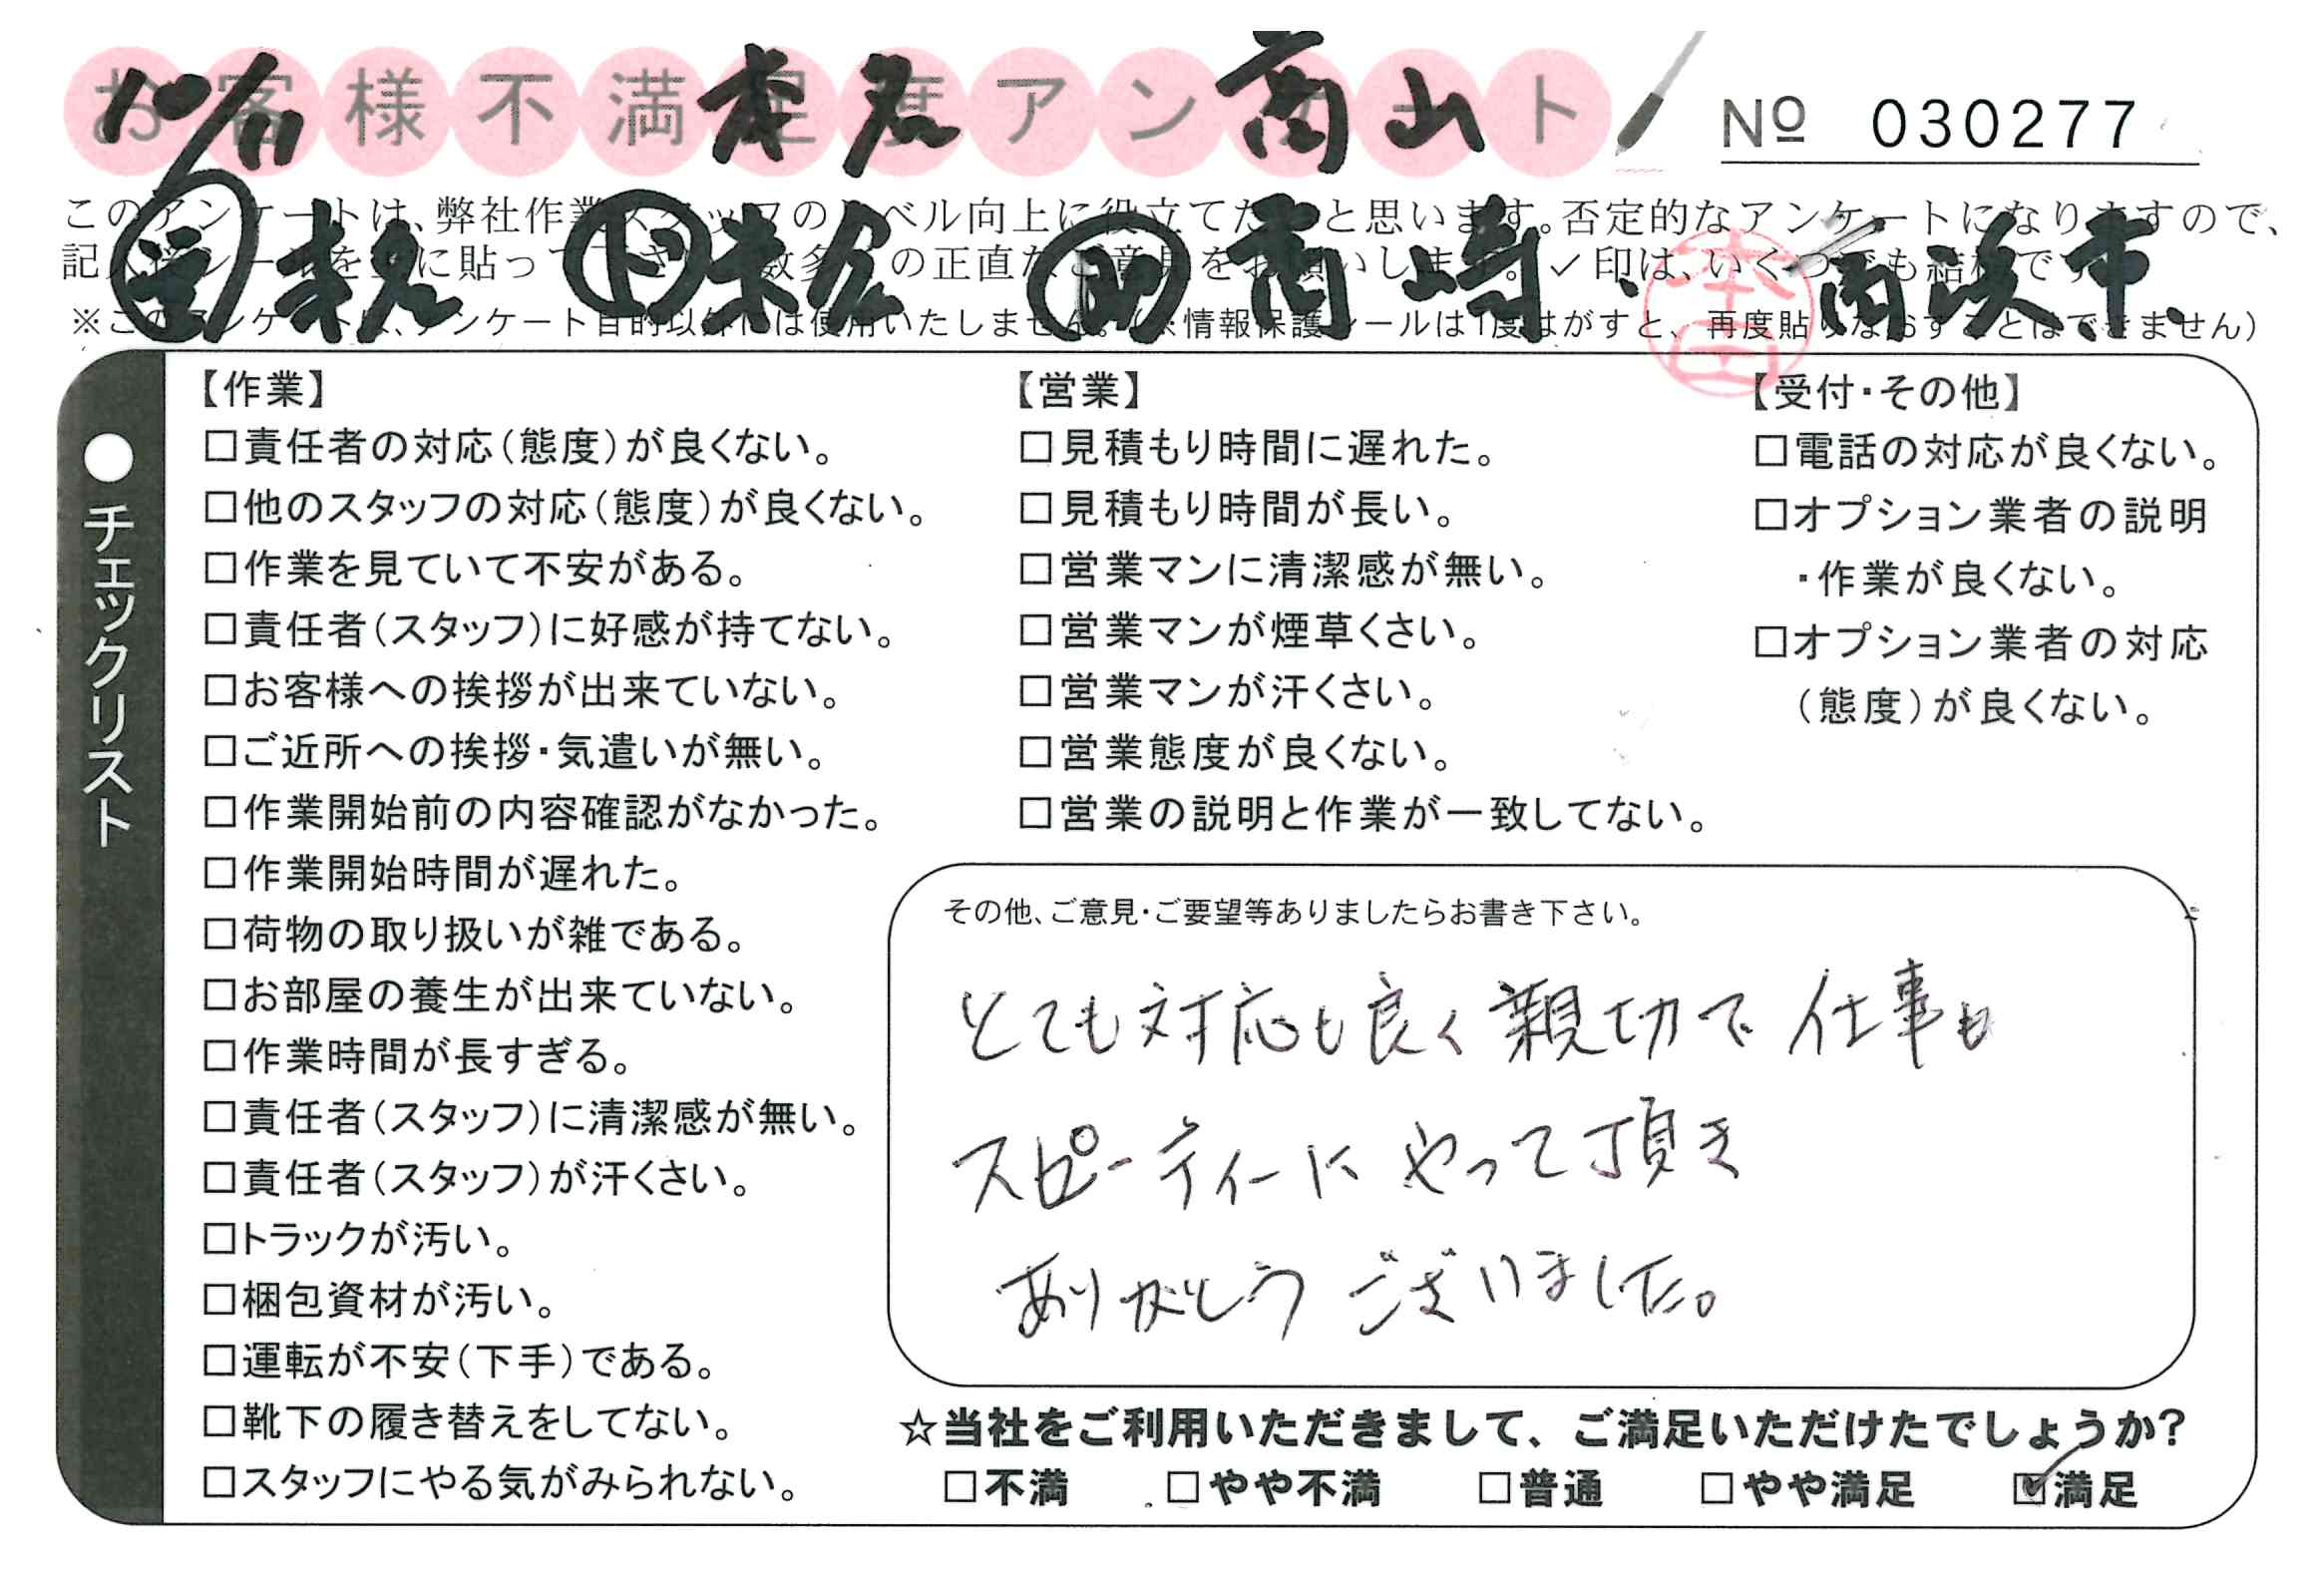 お客様不満足度アンケート
No 030277
10/11
このアンケートは、弊社作業スタッフのレベル向上に役立てたいと思います。否定的なアンケートになりますので、
記入後シールを に貼って下さい。数多くの正直なご意見をお願いします。✓印は、いくつでも結構です。
※このアンケートは、アンケート目的以外には使用いたしません。(※情報保護シールは1度はがすと、再度貼りなおすことはできません)
本田
●チェックリスト
【作業】
□責任者の対応(態度)が良くない。
□他のスタッフの対応(態度)が良くない。
□作業を見ていて不安がある。
□責任者(スタッフ)に好感が持てない。
□お客様への挨拶が出来ていない。
□ご近所への挨拶・気遣いが無い。
□作業開始前の内容確認がなかった。
□作業開始時間が遅れた。
□荷物の取り扱いが雑である。
□お部屋の養生が出来ていない。
□作業時間が長すぎる。
□責任者(スタッフ)に清潔感が無い。
□責任者(スタッフ)が汗くさい。
□トラックが汚い。
□梱包資材が汚い。
□運転が不安(下手)である。
□靴下の履き替えをしてない。
□スタッフにやる気がみられない。
【営業】
□見積もり時間に遅れた。
□見積もり時間が長い。
□営業マンに清潔感が無い。
□営業マンが煙草くさい。
□営業マンが汗くさい。
□営業態度が良くない。
□営業の説明と作業が一致してない。
【受付・その他】
□電話の対応が良くない。
□オプション業者の説明
・作業が良くない。
□オプション業者の対応
(態度)が良くない。
その他、ご意見・ご要望等ありましたらお書き下さい。
とても対応も良く親切で仕事も
スピーディーにやって頂き
ありがとうございました。
☆当社をご利用いただきまして、ご満足いただけたでしょうか?
□不満 □やや不満 □普通 □やや満足 ☑満足